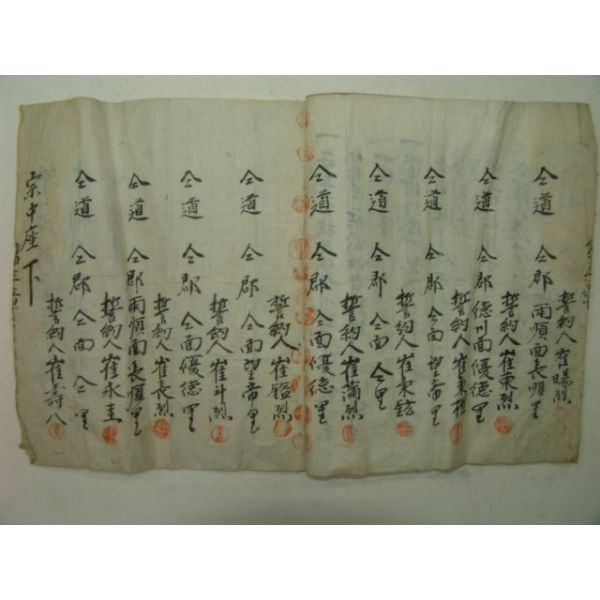 誓約人崔陽烈
仝道 仝郡 雨順面長順里
誓約人崔東烈
仝道 仝郡 德川面優德里
誓約人崔東權
仝道 仝郡 仝面 望帝里
誓約人崔東鉉
仝道 仝郡 仝面 仝里
誓約人崔蒲烈
仝道 仝郡 仝面優德里
誓約人崔鎧烈
仝道 仝郡 仝面望帝里
誓約人崔斗烈
仝道 仝郡 仝面優德里
誓約人崔長烈
仝道 仝郡 雨順面長順里
誓約人崔永圭
仝道 仝郡 仝面 仝里
誓約人崔壽八
宗中座下